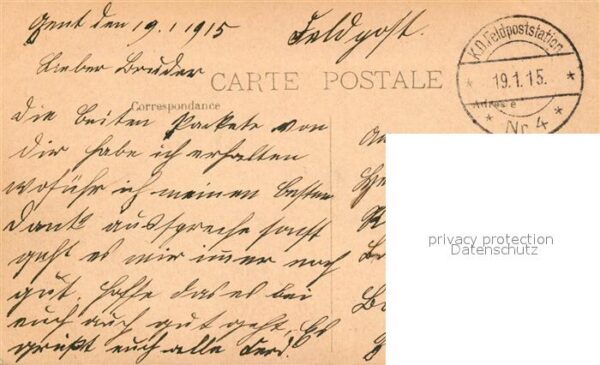 Gent den 19.1 1915
Feldpost.
Lieber Bruder
CARTE POSTALE
Correspondance
Adresse
K.D. Feldpoststation
19.1.15.
Nr 4
die beiten Packete von
dir habe ich erhalten
woführ ich meinen besten
Dank aussprechе sonst
geht es mir imer noch
gut. hoffe das es bei
euch auch gut geht, Es
grüßt euch alle Ferd.
privacy protection
Datenschutz